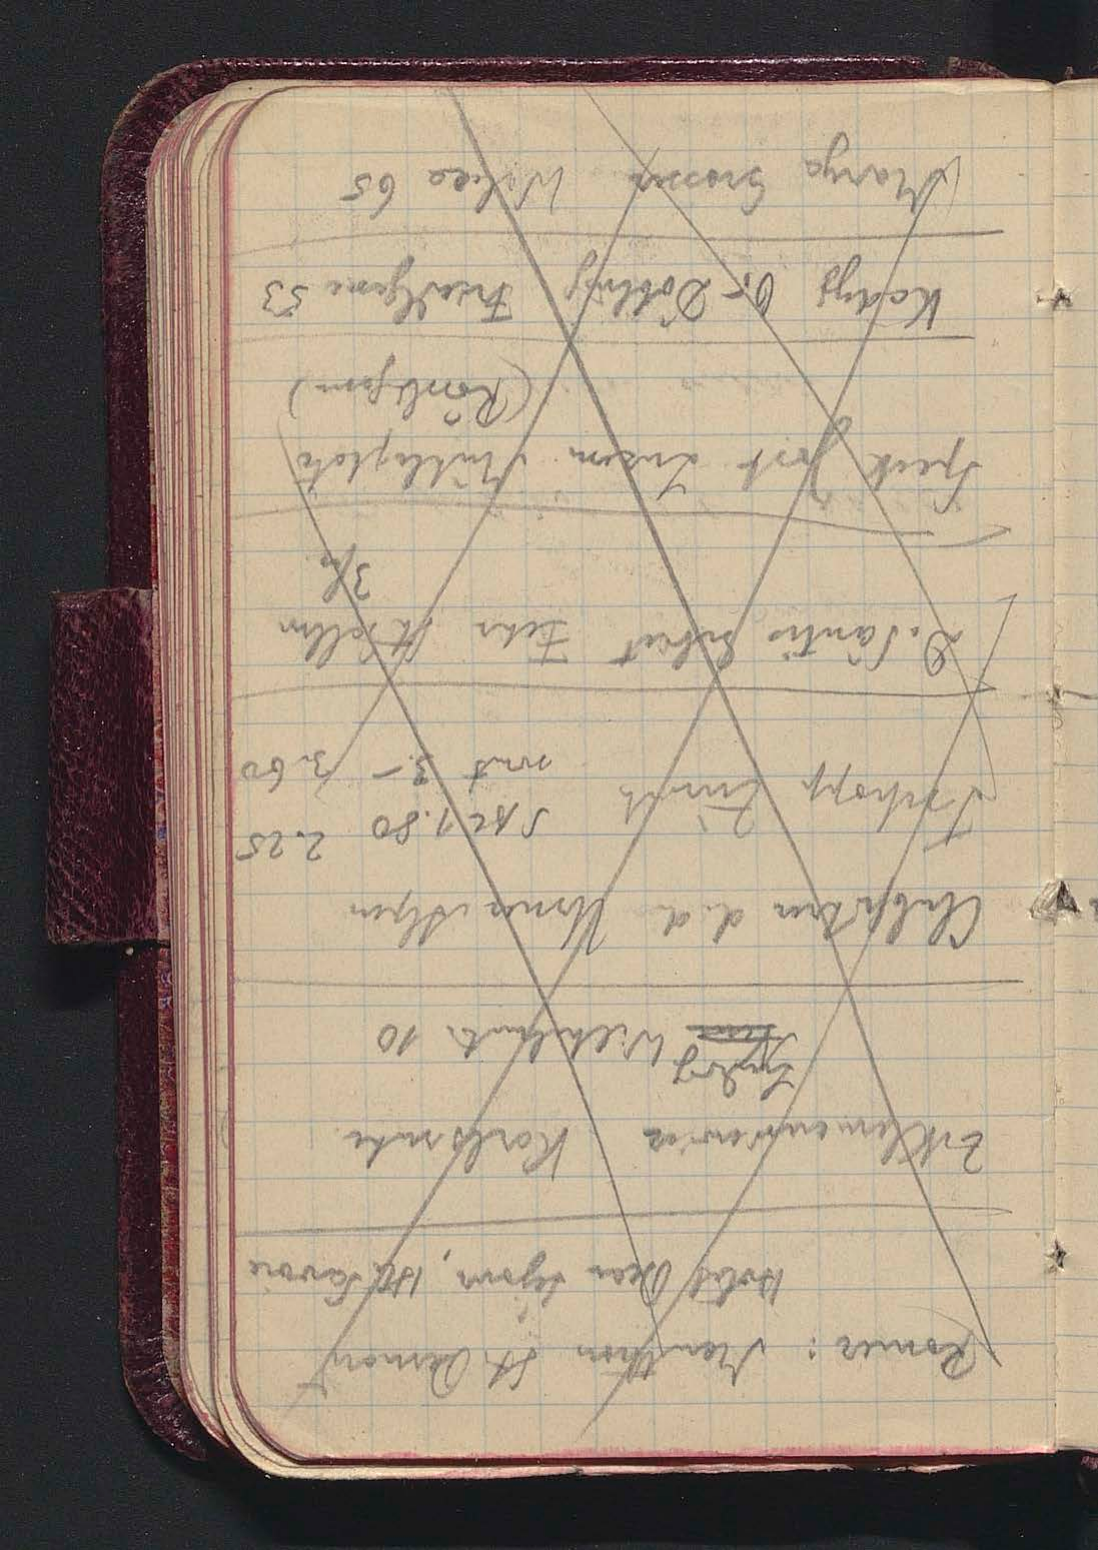 Romer: Menthon St. Bernard
Hotel Beau Séjour, Hte Savoie
Klemensiewicz Karlsruhe
Wilhelmstr. 10
Clubführer d. d. Urner Alpen
Tschopp Zürich
I Bd 1.80 2.25
mit 3.- 3.60
D. Säntis Gebiet Fehr St Gallen
3 fr.
Speck Jost Luzern Mühleplatz
(Rössligasse)
Kadyj Dr Döbling 53
Marya Grosser Wilcza 65